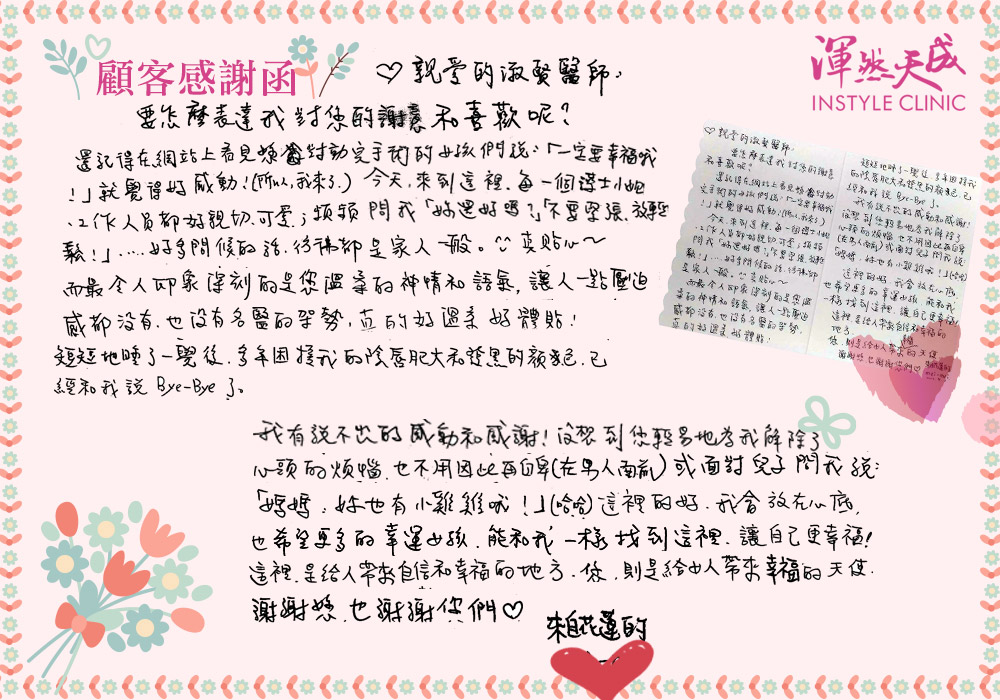 顧客感謝函
渾然天成
INSTYLE CLINIC
♡ 親愛的淑賢醫師:
要怎麼表達我對您的謝意和喜歡呢?
還記得在網站上看見煩醫師對動完手術的女孩們說:「一定要幸福哦
!」就覺得好感動!(所以,我來了.) 今天,來到這裡.每一個護士小姐
、工作人員都好親切.可愛;頻頻問我「好還好嗎?」「不要緊張.放輕
鬆!」.....好多問候的話.彷彿都是家人一般。^^ 真貼心~
而最令人印象深刻的是您溫柔的神情和語氣,讓人一點壓迫
感都沒有.也沒有名醫的架勢,真的好溫柔 好體貼!
短短地睡了一覺後.多年困擾我的陰唇肥大和發黑的顏色.已
經和我說 Bye-Bye 了。
我有說不出的感動和感謝!沒想到您輕易地為我解除了
心頭的煩惱.也不用因此再自卑(在男人面前)或面對兒子問我說:
「媽媽,妳也有小雞雞哦!」(哈哈)這裡的好.我會放在心底,
也希望更多的幸運女孩.能和我一樣找到這裡.讓自己更幸福!
這裡.是給人帶來自信和幸福的地方.您,則是給女人帶來幸福的天使.
謝謝您.也謝謝你們♡
來自花蓮的